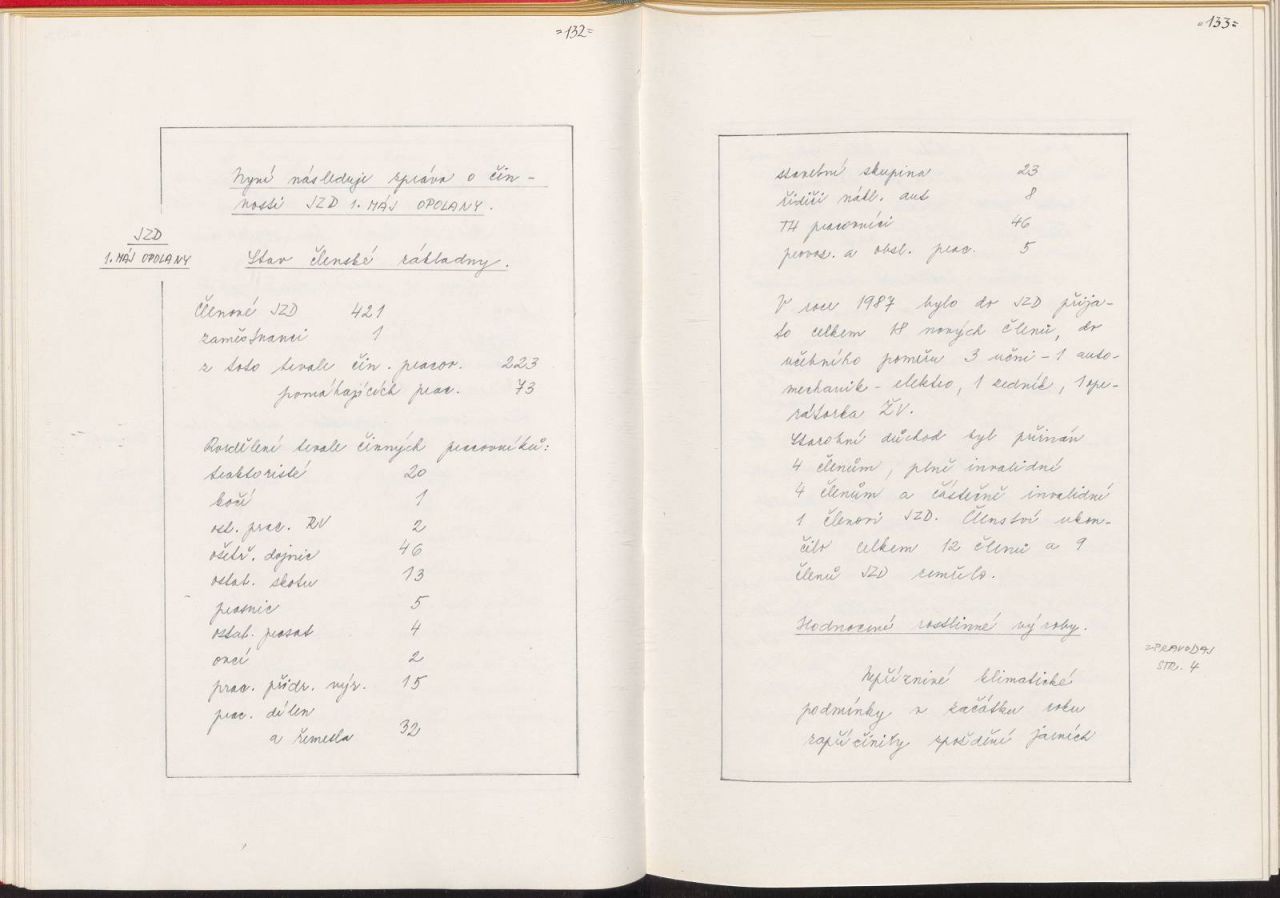 =132=
Nyní následuje zpráva o čin-
nosti JZD 1. MÁJ OPOLANY.
JZD
1. MÁJ OPOLANY
Stav členské základny.
Členové JZD 421
zaměstnanci 1
z toto trvale čin. pracov. 223
pomáhajících prac. 73
Rozdělení trvale činných pracovníků:
traktoristé 20
kočí 1
ost. prac. RV 2
ošetř. dojnic 46
ostat. skotu 13
prasnic 5
ostat. prasat 4
ovcí 2
prac. přidr. výr. 15
prac. dílen
a řemesla 32
=133=
stavební skupina 23
řidiči nákl. aut 8
TH pracovníci 46
provoz. a obsl. prac. 5
V roce 1987 bylo do JZD přija-
to celkem 18 nových členů, do
učebního poměru 3 učni - 1 auto-
mechanik - elektro, 1 zedník, 1 ope-
rátorka ŽV.
Starobní důchod byl přiznán
4 členům, plně invalidní
4 členům a částečně invalidní
1 členovi JZD. Členství ukon-
čilo celkem 12 členů a 9
členů JZD zemřelo.
Hodnocení rostlinné výroby.
ZPRAVODAJ
STR. 4
Nepříznivé klimatické
podmínky z začátku roku
zapříčinily zpoždění jarních